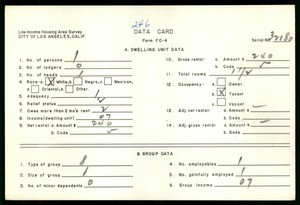 246
Low Income Housing Area Survey
CITY OF LOS ANGELES, CALIF.
DATA CARD
Form FG-4
Serial No. 32180
A. DWELLING UNIT DATA
1. No. of persons 1
2. No. of lodgers 0
3. No. of heads 1
4. Race: a. X White, b. Negro, c. Mexican,
d. Oriental, e. Other
5. Adequacy
6. Relief status
7. Owes more than 2 mo's rent? 2
8. Income (dwelling unit) 07
9. Net rental: a. Amount $ 200
b. Code
10. Gross rental: a. Amount $ 200
b. Code
11. Total rooms
12. Occupancy: a. Owner
b. X Tenant
c. Vacant
13. Adj. net rental: a. Amount $
b. Code
14. Adj. gross rental: a. Amount $
b. Code
B. GROUP DATA
1. Type of group 8
2. Size of group 1
3. No. of minor dependents 0
4. No. employables 1
5. No. gainfully employed 1
6. Group income 07